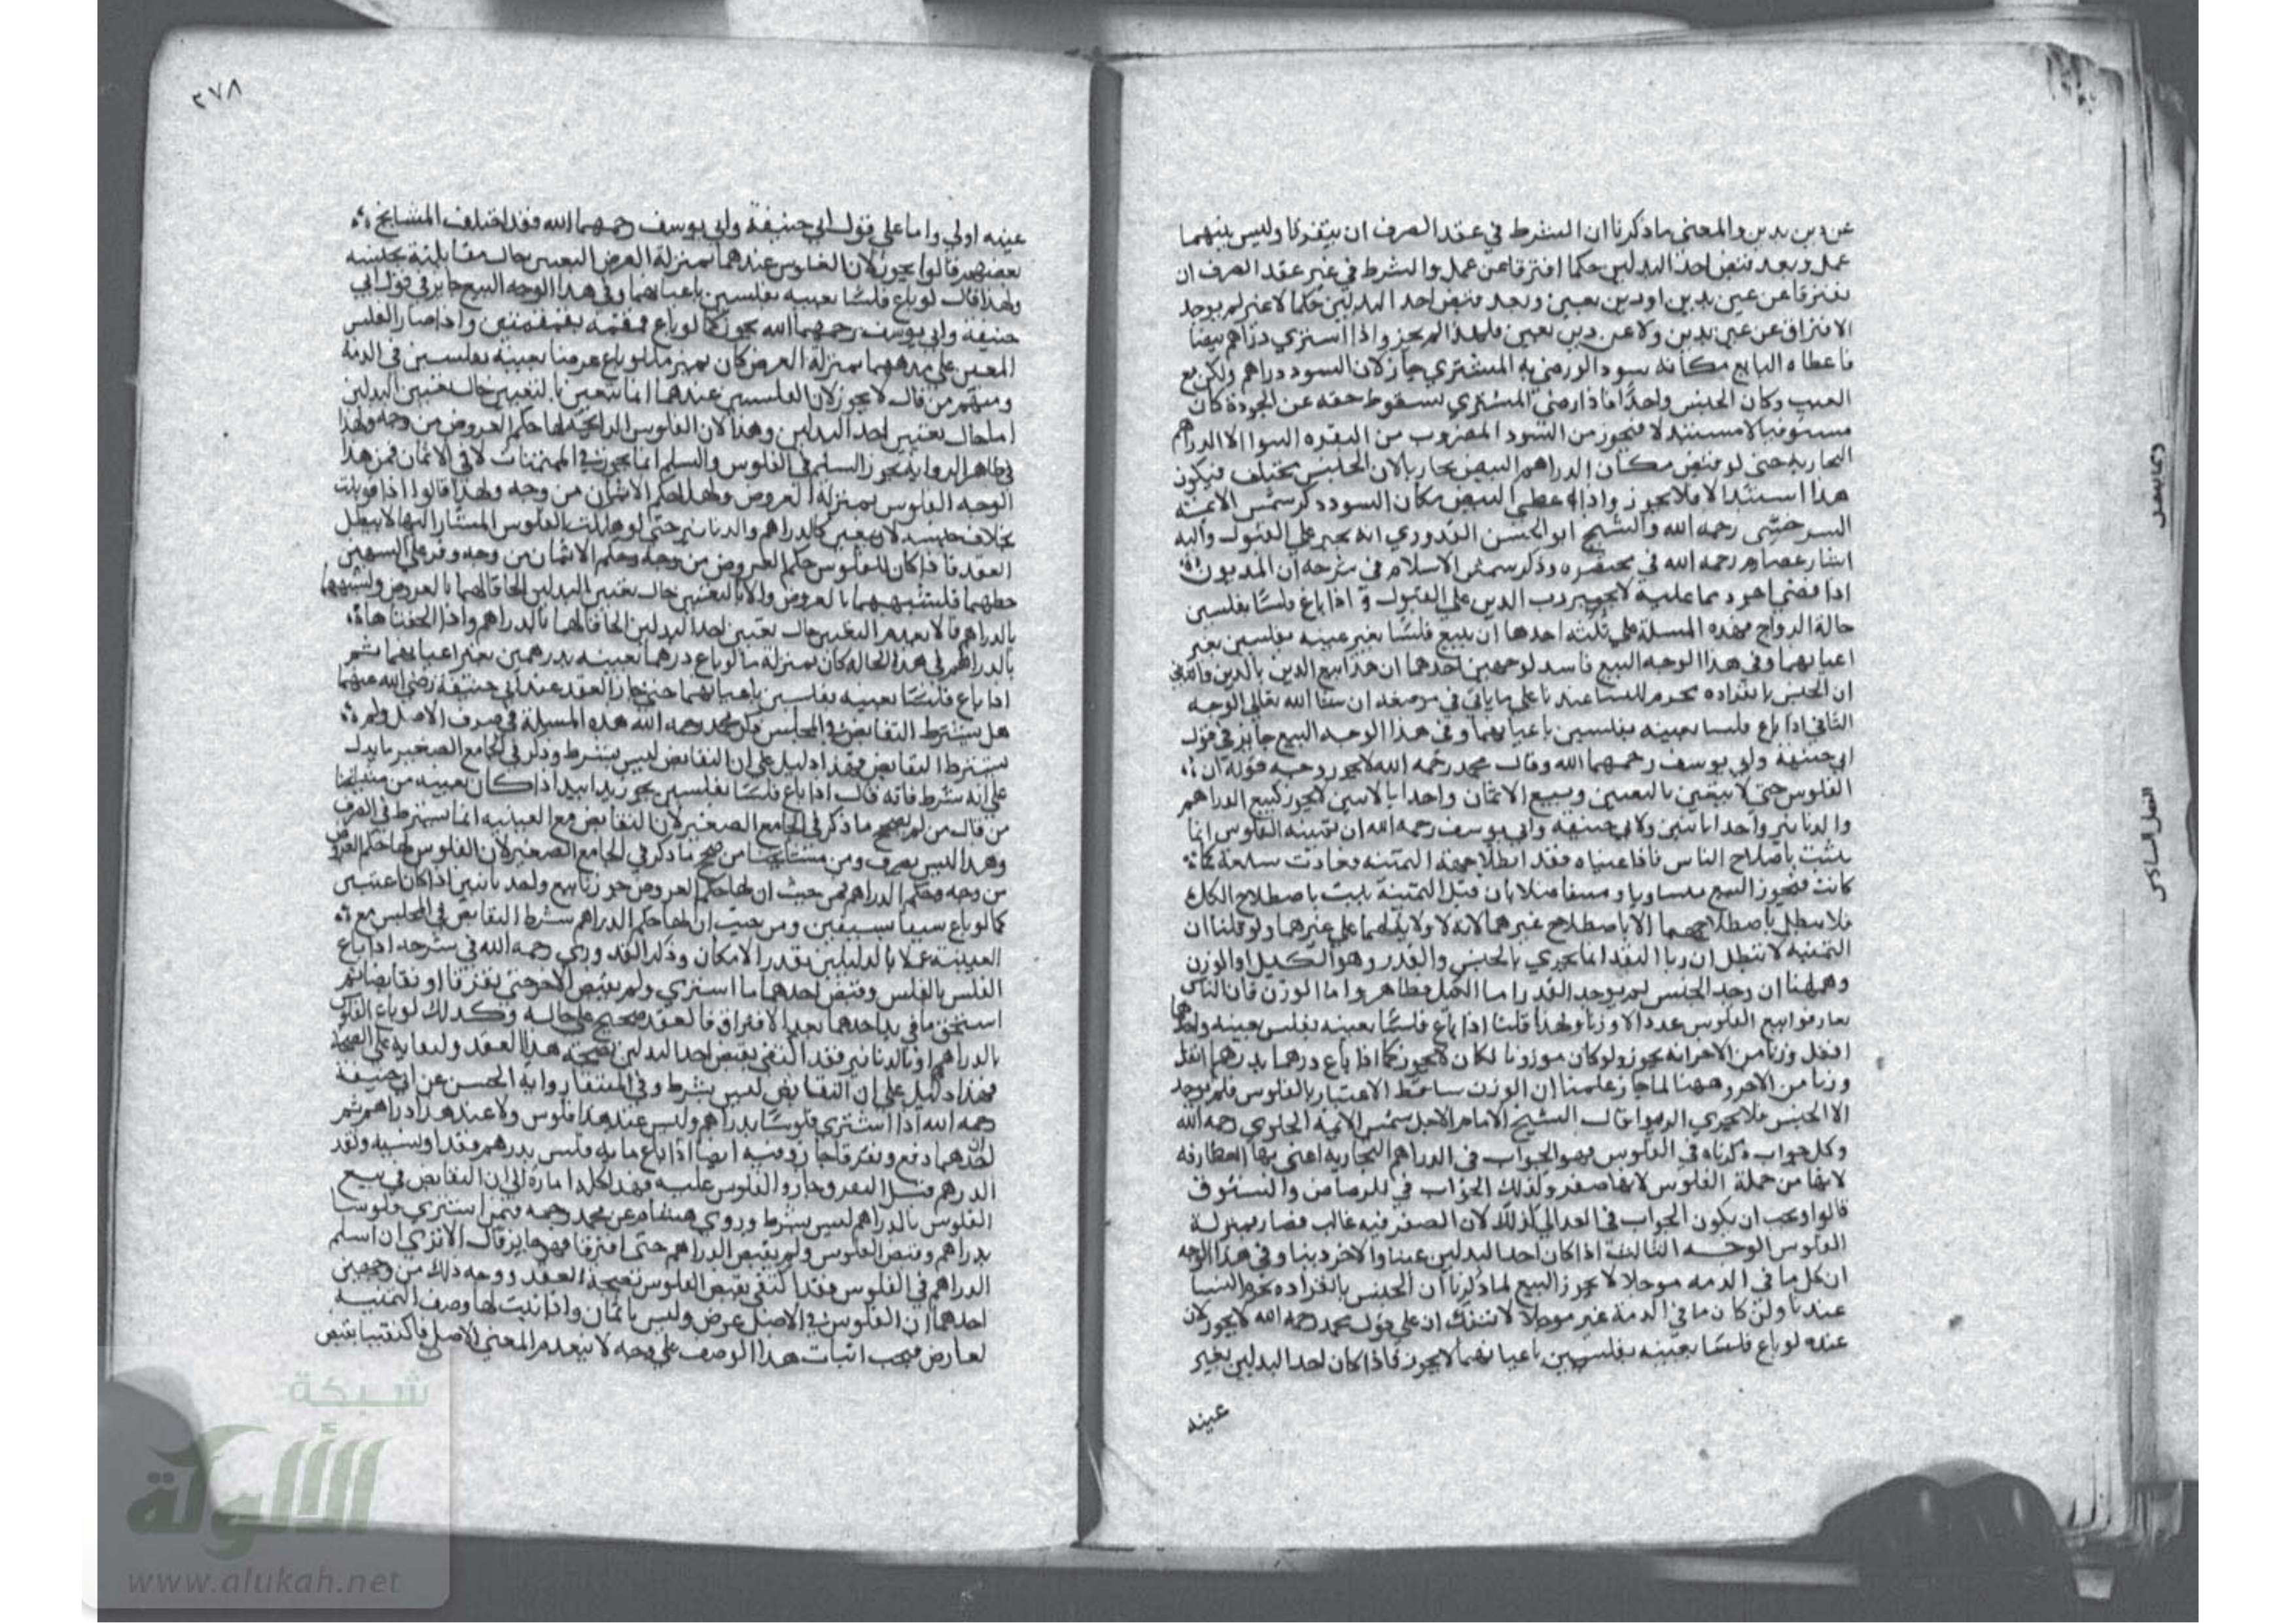 عن دين بدين والمعنى ما ذكرنا ان الشرط في عقد الصرف ان يتفرقا وليس بينهما
عمل وبعد قبض احد البدلين حكما افترقا عن عمل والشرط في غير عقد الصرف ان
يفترقا عن عين بدين او دين بعين وبعد قبض احد البدلين حكما لا غير لم يوجد
الافتراق عن عين بدين ولا عن دين بعين فلهذا لم يجز واذا اشترى دراهم بيضا
فاعطاه البايع مكانه سودا ورضي به المشتري جاز لان السود دراهم ولكن مع
العيب وكان الجنس واحدا فاذا رضي المشتري سقوط حقه عن الجودة كان
مستوفيا لا مستبدلا فيجوز من السود المضروب من النقره السوا الا الدراهم
البخارية حتى لو قبض مكان الدراهم البيض بخاريا لان الجنس يختلف فيكون
هذا استبدالا فلا يجوز واذا اعطى البيض مكان السود ذكر شمس الائمة
السرخسي رحمه الله والشيخ ابو الحسن القدوري انه يجبر على القبول واليه
اشار عصام رحمه الله في مختصره وذكر شمس الاسلام في شرحه ان المديون
اذا قضى اجود مما عليه لا يجبر رب الدين على القبول اذا باع فلسا بفلسين
حالة الرواج فهذه المسلة على ثلثه احدها ان يبيع فلسا بغير عينه بفلسين بغير
اعيانهما وفي هذا الوجه البيع فاسد لوجهين احدهما ان هذا بيع الدين بالدين والثاني
ان الجنس بانفراده يحرم للنسا عندنا على ما ياتي في موضعه ان شا الله تعالى الوجه
الثاني اذا باع فلسا بعينه بفلسين باعيانهما وفي هذا الوجه البيع جايز في قول
ابي حنيفة وابي يوسف رحمهما الله وقال محمد رحمه الله لا يجوز وجه قوله ان
الفلوس حتى لا يتعين بالتعيين وبيع الاثمان واحدا بالاثنين لا يجوز كبيع الدراهم
والدنانير واحدا باثنين ولابي حنيفة وابي يوسف رحمه الله ان ثمنيه الفلوس انما
يثبت باصلاح الناس فاذا عيناه فقد ابطلا جهة الثمنيه فعادت سلعة كما
كانت فيجوز البيع متساويا ومتفاضلا بان قيل الثمنية يثبت باصطلاح الكل
فلا يبطل باصطلاحهما الا باصطلاح غيرهما لانه لا ولاية لهما على غيرهما ولو قلنا ان
الثمنيه لا تبطل ان ربا النقد انما يجري بالجنس والقدر وهو الكيل او الوزن
وههنا ان وجد الجنس لم يوجد القدر اما الكيل فظاهر واما الوزن فان الناس
تعارفوا بيع الفلوس عددا لا وزنا ولهذا قلنا اذا باع فلسا بعينه بفلس بعينه واحدهما
اثقل وزنا من الاخر انه يجوز ولو كان موزونا لكان لا يجوز كما اذا باع درهما بدرهم اثقل
وزنا من الاخر وههنا لما جاز علمنا ان الوزن ساقط الاعتبار بالفلوس فلم يوجد
الا الجنس فلا يجري الربوا قال الشيخ الامام الاجل شمس الائمة الحلوي رحمه الله
وكل جواب ذكرناه في الفلوس فهو الجواب في الدراهم البخارية اعني بها الغطارفه
لانها من جملة الفلوس لانها صفر وكذلك الجواب في الرصاص والستوق
قالوا ويجب ان يكون الجواب في العدالي كذلك لان الصفر فيه غالب فصار بمنزلة
الفلوس الوجه الثالث اذا كان احد البدلين عينا والاخر دينا وفي هذا الوجه
ان كل ما في الذمه موجلا لا يجوز البيع لما ذكرنا ان الجنس بانفراده يحرم النسا
عندنا ولئن كان ما في الذمة غير موجلا لا شك ان على قول محمد رحمه الله لا يجوز لان
عنده لو باع فلسا بعينه بفلسين باعيانهما لا يجوز فاذا كان احد البدلين بغير
عينه
٢٧٨
عينه اولي واما على قول ابي حنيفة وابي يوسف رحمهما الله فقد اختلف المشايخ
بعضهم قالوا يجوز لان الفلوس عندهما بمنزلة العرض المعين حال مقابلته بجنسه
ولهذا قال لو باع فلسا بعينه بفلسين باعيانهما وفي هذا الوجه البيع جايز في قول ابي
حنيفة وابي يوسف رحمهما الله يجوز كما لو باع قمقمه بقمقمتين واذا صار الفلس
المعين على مذهبهما بمنزلة العرض كان بمنزلة ما لو باع عرضا بعينه بفلسين في الذمة
ومنهم من قال لا يجوز لان الفلسين عندهما انما تتعين بالتعيين حال تعيين البدلين
اما حال تعيين احد البدلين وهذا لان الفلوس الرائجة لها حكم العروض من وجه ولهذا
في ظاهر الرواية يجوز السلم في الفلوس والسلم انما يجوز في المثمنات لا في الاثمان فمن هذا
الوجه الفلوس بمنزلة العروض ولها حكم الاثمان من وجه ولهذا قالوا اذا قوبلت
بخلاف جنسه لا يتعين كالدراهم والدنانير حتى لو هلكت الفلوس المشار اليها لا يبطل
العقد فاذا كان للفلوس حكم العروض من وجه وحكم الاثمان من وجه وفر على الشبهين
حظهما فلتشبيههما بالعروض والا بالتعيين حال تعيين البدلين الحاقا لهما بالعروض ولشبههما
بالدراهم قالا بعدم التعيين حال تعيين احد البدلين الحاقا لهما بالدراهم واذا الحقناها
بالدراهم في هذه الحالة كان بمنزلة ما لو باع درهما بعينه بدرهمين بغير اعيانهما ثم
اذا باع فلسا بعينه بفلسين باعيانهما حتى جاز العقد عند ابي حنيفة رضي الله عنهما
هل يشترط التقابض في المجلس ذكر محمد رحمه الله هذه المسلة في صرف الاصل ولم
يشترط التقابض فهذا دليل على ان التقابض ليس بشرط وذكر في الجامع الصغير ما يدل
على انه شرط فانه قال اذا باع فلسا بفلسين يجوز يدا بيد اذا كان بعينه من مشايخنا
من قال من لم يصحح ما ذكر في الجامع الصغير لان التقابض مع العينيه انما يشترط في الصرف
وهذا ليس بصرف ومن مشايخنا من صحح ما ذكر في الجامع الصغير لان الفلوس لها حكم العروض
من وجه وحكم الدراهم فمن حيث ان لها حكم العروض جوزنا بيع واحد باثنين اذا كان عينين
كما لو باع سيفا بسيفين ومن حيث ان لها حكم الدراهم شرط التقابض في المجلس مع
العينية عملا بالدليلين بقدر الامكان وذكر القدوري رحمه الله في شرحه اذا باع
الفلس بالفلس وقبض احدهما ما اشترى ولم يقبض الاخر حتى يفترقا او تقابضا ثم
استحق ما في يد احدهما بعد الافتراق فالعقد صحيح على حاله وكذلك لو باع الفلوس
بالدراهم او بالدنانير فقد اكتفى بقبض احد البدلين لصحة هذا العقد ولبقايه على الصحة
فهذا دليل على ان التقابض ليس بشرط وفي المنتقى رواية الحسن عن ابي حنيفة
رحمه الله اذا اشترى فلوسا بدراهم وليس عند هذا فلوس ولا عند هذا دراهم ثم
احدهما دفع وتفرقا جاز وفيه ايضا اذا باع مايه فلس بدرهم فقدا وبنسيه ونقد
الدرهم قبل التفرق جاز والفلوس عليه فهذا كله امارة الى ان التقابض في بيع
الفلوس بالدراهم ليس بشرط وروى هشام عن محمد رحمه فيمن اشترى فلوسا
بدراهم وقبض الفلوس ولم يقبض الدراهم حتى افترقا فهو جايز قال الا ترى ان اسلم
الدراهم في الفلوس فقد اكتفى بقبض الفلوس لصحة العقد ووجه ذلك من وجهين
احدهما ان الفلوس في الاصل عرض وليس باثمان وانما ثبت لها وصف الثمنيه
لعارض فيجب اثبات هذا الوصف على وجه لا ينعدم المعنى الاصل فاكتفينا بقبض
شبكة
الألوكة
www.alukah.net